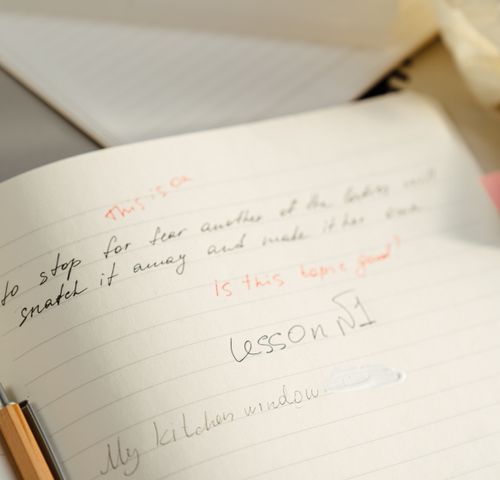 This is a
to stop for fear another of the ladies
snatch it away and make it her own
Is this topic good?
Lesson №1
My kitchen window.